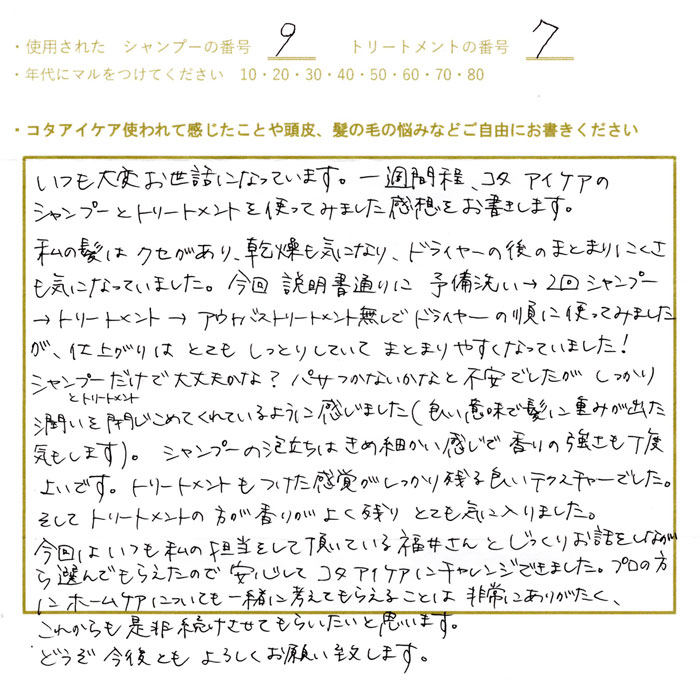 ・使用された　シャンプーの番号　9　トリートメントの番号　7
・年代にマルをつけてください　10・20・30・40・50・60・70・80
・コタアイケア使われて感じたことや頭皮、髪の毛の悩みなどご自由にお書きください
いつも大変お世話になっています。一週間程、コタ アイケアの
シャンプーとトリートメントを使ってみました感想をお書きします。
私の髪は クセがあり、乾燥も気になり、ドライヤーの後のまとまりにくさ
も気になっていました。今回 説明書通りに 予備洗い→2回シャンプー
→トリートメント→アウトバストリートメント無しでドライヤーの順に使ってみました
が、仕上がりは とても しっとりしていて まとまりやすくなっていました！
シャンプーだけで大丈夫かな？ パサつかないかなと 不安でしたが しっかり
とトリートメント
潤いを閉じこめてくれているように感じました(良い意味で髪に重みが出た
気もします)。シャンプーの泡立ちは きめ細かい感じで 香りの強さも丁度
よいです。トリートメントもつけた感覚がしっかり残る良いテクスチャーでした。
そしてトリートメントの方が香りが よく残り とても気に入りました。
今回は いつも私の担当をして頂いている福井さんと じっくりお話をしなが
ら選んでもらえたので 安心して コタアイケアにチャレンジできました。プロの方
にホームケアについても一緒に考えてもらえることは 非常にありがたく、
これからも是非続けさせてもらいたいと思います。
どうぞ今後とも よろしくお願い致します。